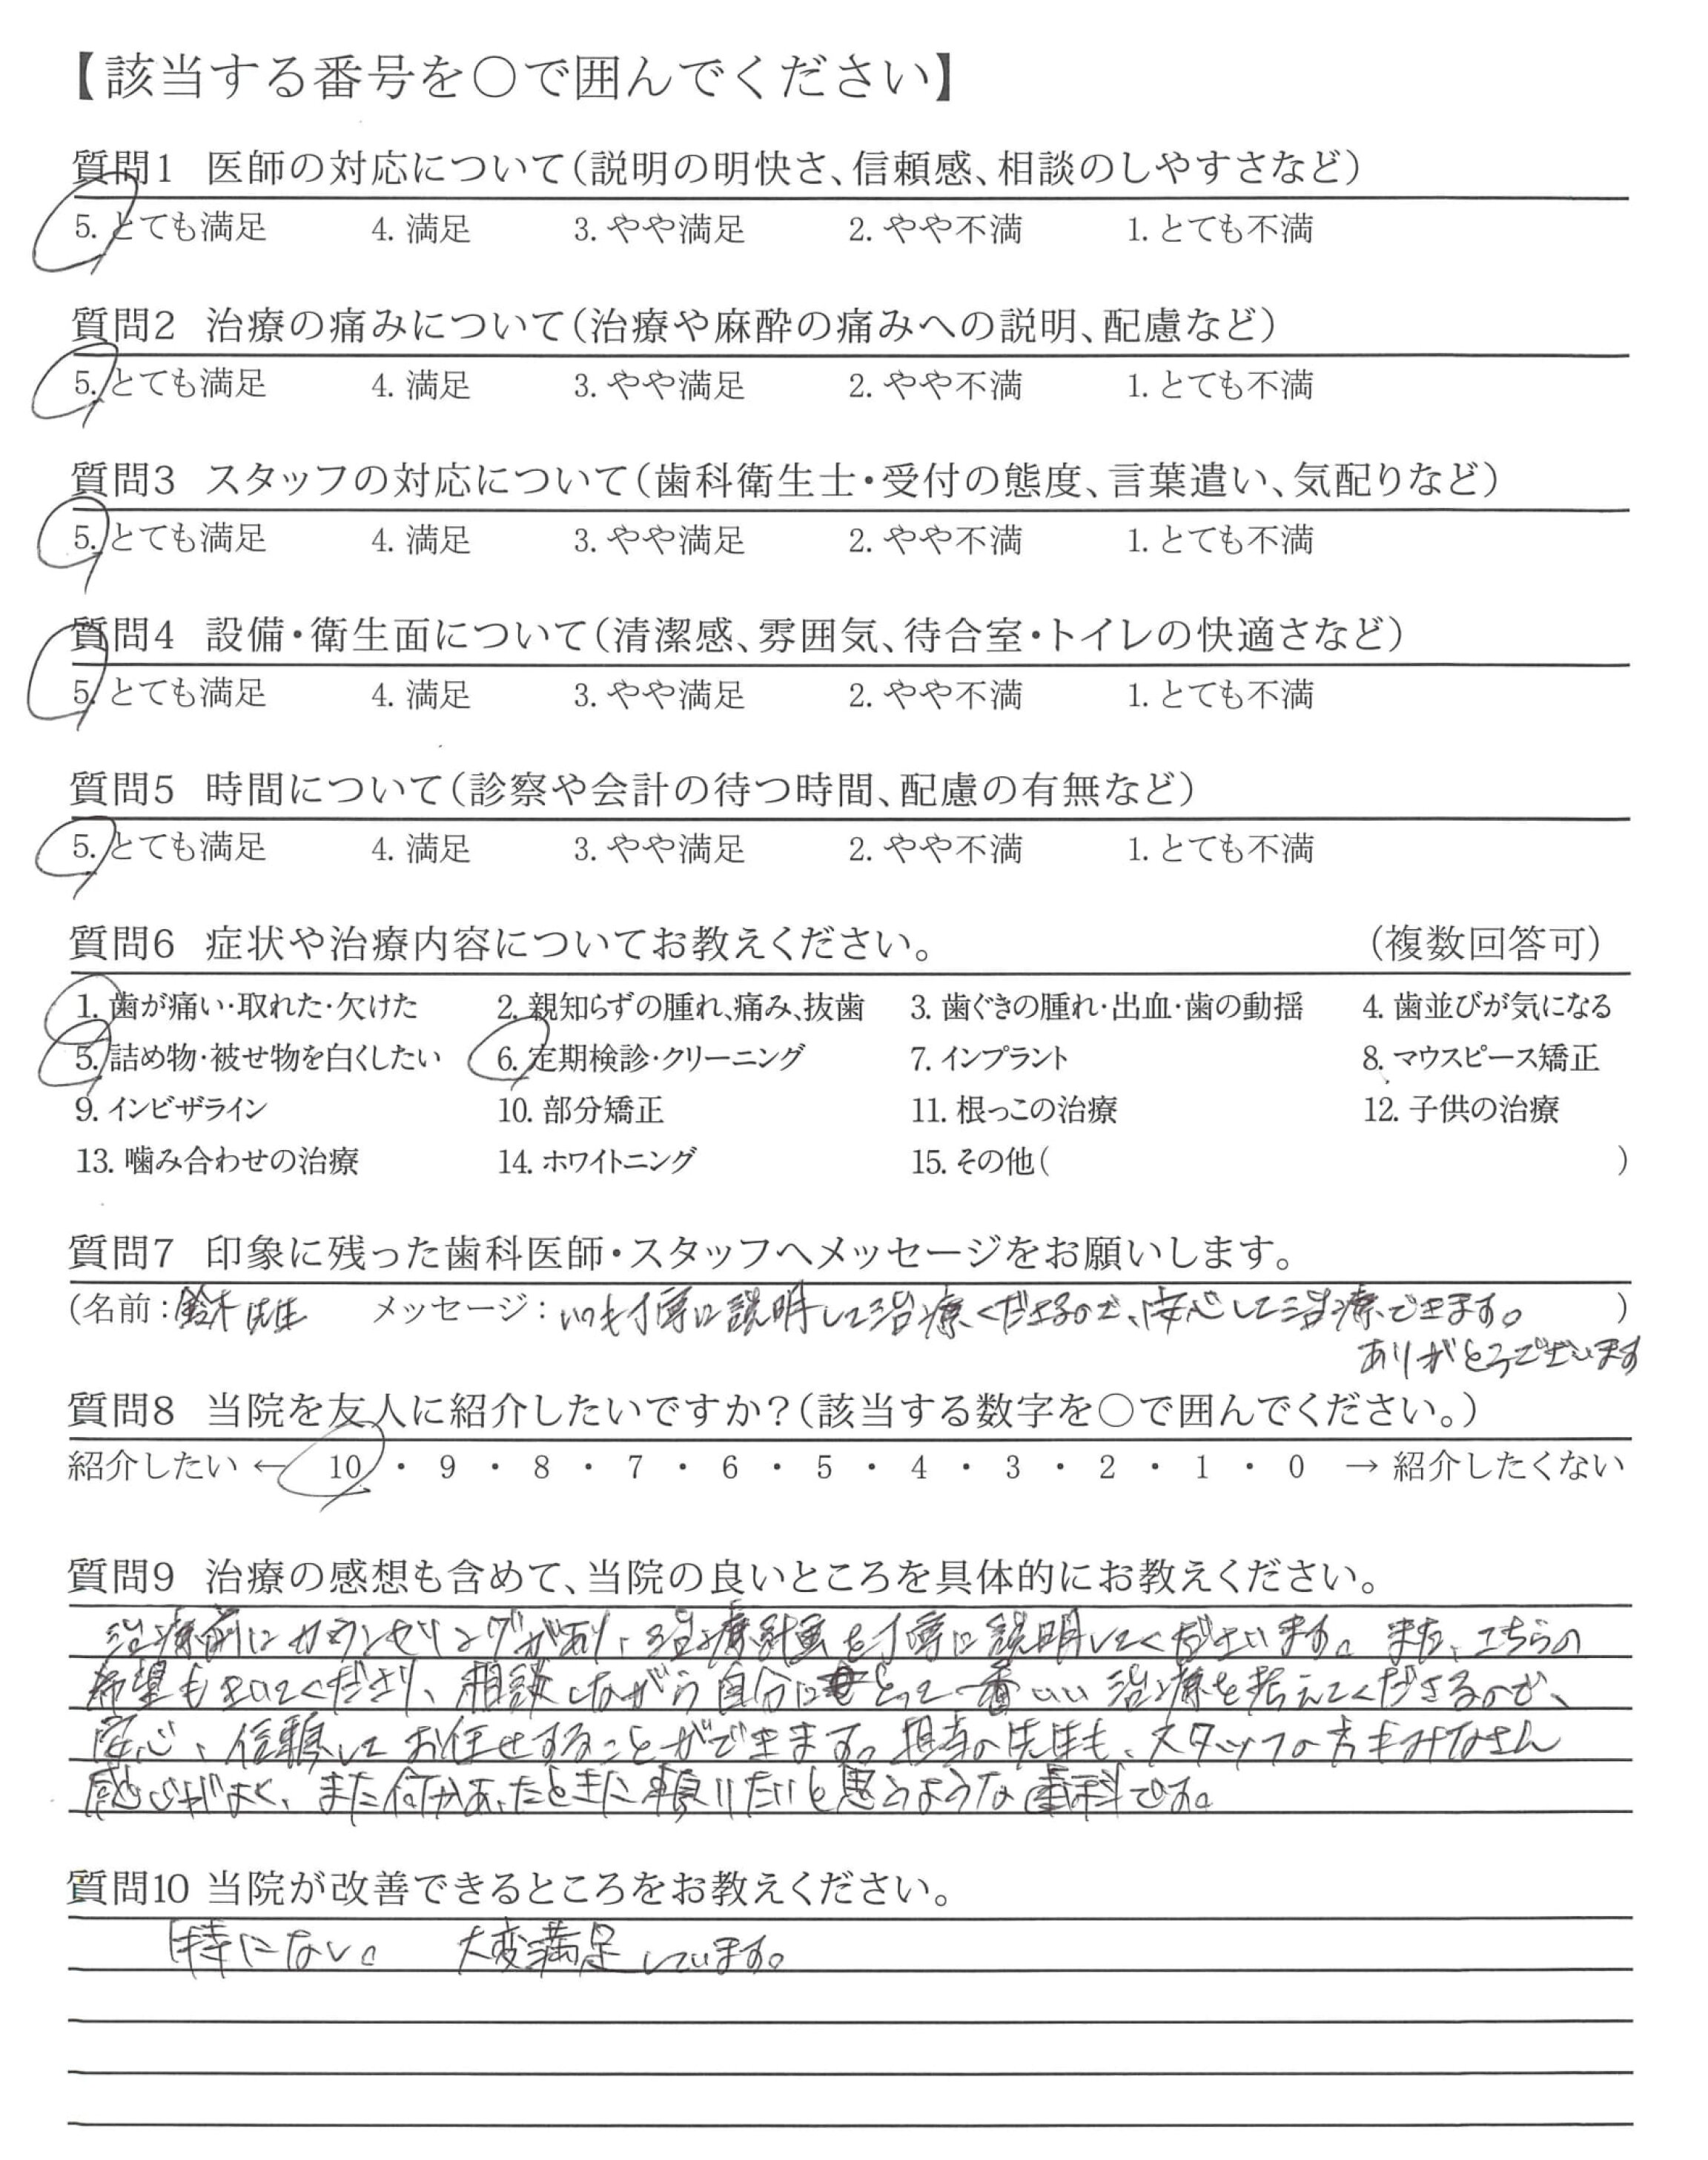 【該当する番号を〇で囲んでください】
質問1 医師の対応について(説明の明快さ、信頼感、相談のしやすさなど)
5. とても満足 4. 満足 3. やや満足 2. やや不満 1. とても不満
質問2 治療の痛みについて(治療や麻酔の痛みへの説明、配慮など)
5. とても満足 4. 満足 3. やや満足 2. やや不満 1. とても不満
質問3 スタッフの対応について(歯科衛生士・受付の態度、言葉遣い、気配りなど)
5. とても満足 4. 満足 3. やや満足 2. やや不満 1. とても不満
質問4 設備・衛生面について(清潔感、雰囲気、待合室・トイレの快適さなど)
5. とても満足 4. 満足 3. やや満足 2. やや不満 1. とても不満
質問5 時間について(診察や会計の待つ時間、配慮の有無など)
5. とても満足 4. 満足 3. やや満足 2. やや不満 1. とても不満
質問6 症状や治療内容についてお教えください。 (複数回答可)
1. 歯が痛い・取れた・欠けた 2. 親知らずの腫れ、痛み、抜歯 3. 歯ぐきの腫れ・出血・歯の動揺 4. 歯並びが気になる
5. 詰め物・被せ物を白くしたい 6. 定期検診・クリーニング 7. インプラント 8. マウスピース矯正
9. インビザライン 10. 部分矯正 11. 根っこの治療 12. 子供の治療
13. 噛み合わせの治療 14. ホワイトニング 15. その他( )
質問7 印象に残った歯科医師・スタッフへメッセージをお願いします。
(名前:鈴木先生 メッセージ:いつも丁寧に説明して治療くださるので、安心して治療できます。 )
ありがとうございます
質問8 当院を友人に紹介したいですか?(該当する数字を〇で囲んでください。)
紹介したい ← 10 ・ 9 ・ 8 ・ 7 ・ 6 ・ 5 ・ 4 ・ 3 ・ 2 ・ 1 ・ 0 → 紹介したくない
質問9 治療の感想も含めて、当院の良いところを具体的にお教えください。
治療前にカウンセリングがあり、治療計画を丁寧に説明してくださいます。また、こちらの
希望もきいてくださり、相談しながら自分にとって一番いい治療を考えてくださるので、
安心、信頼してお任せすることができます。担当の先生も、スタッフの方もみなさん
感じがよく、また何かあったときに頼りたいと思うような歯科です。
質問10 当院が改善できるところをお教えください。
特にない。 大変満足しています。